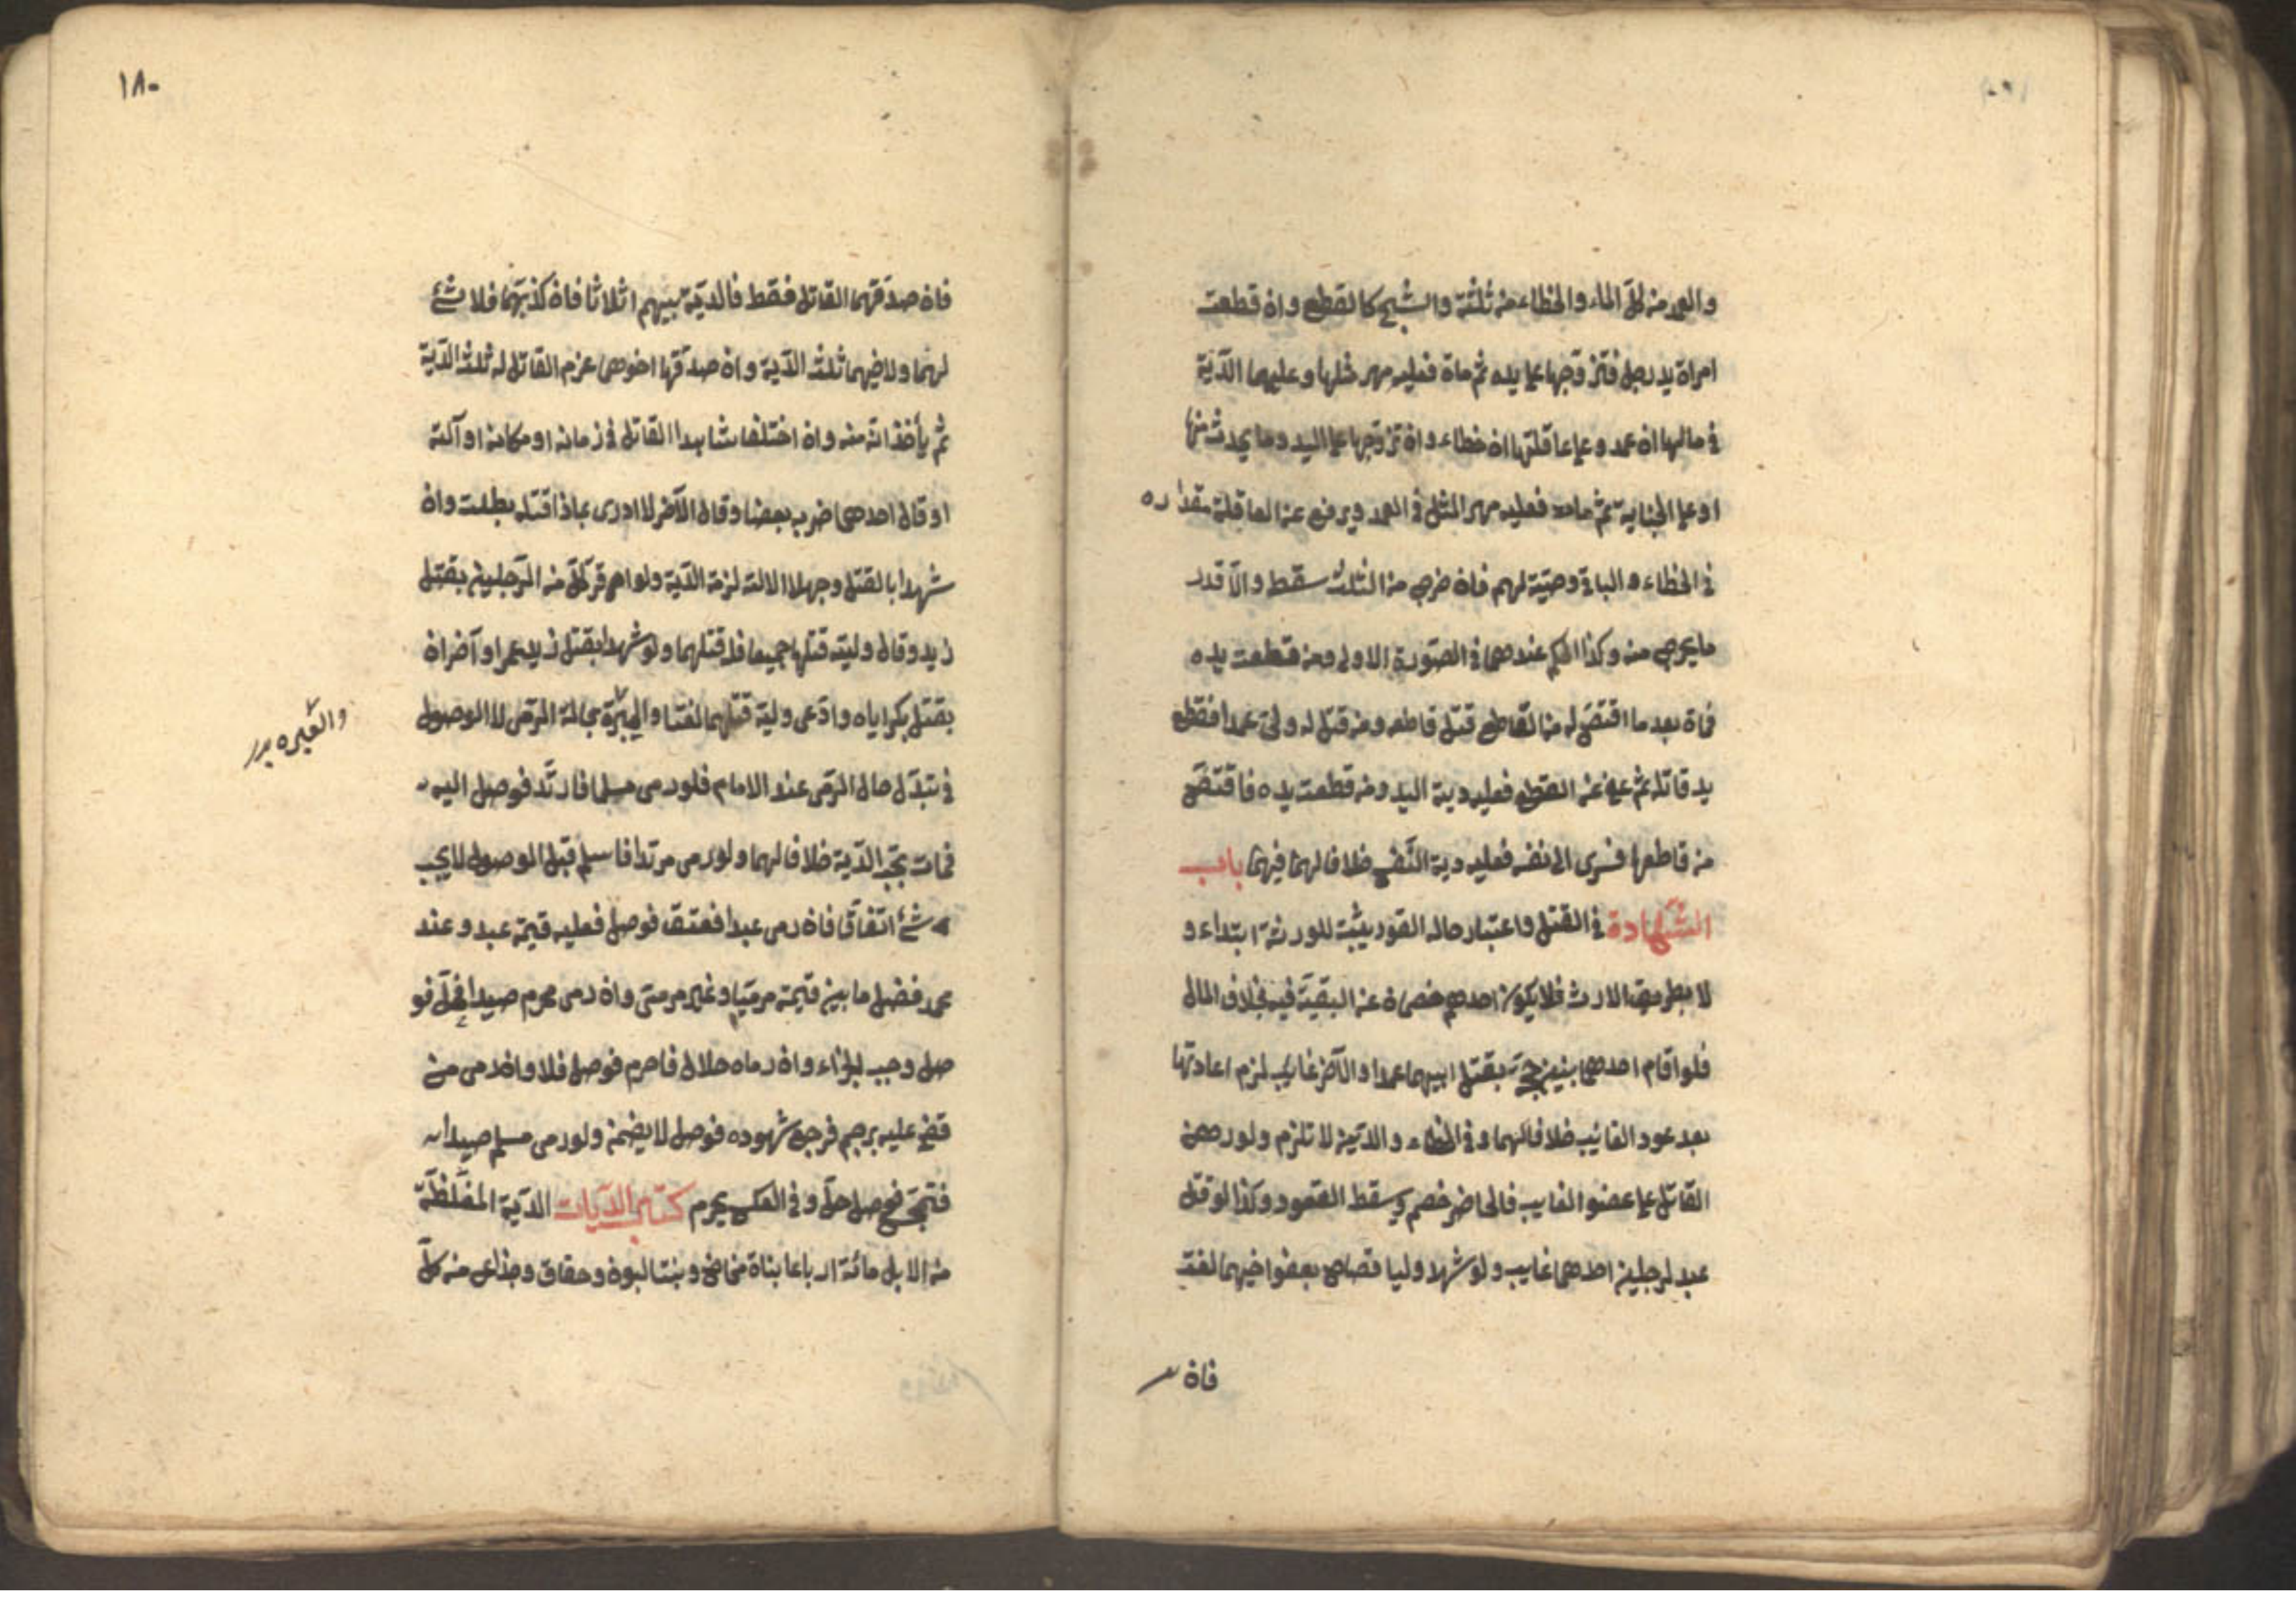 والعمد من كلّ المال والخطاء من ثلثه والشج كالقطع وان قطعت
امراة يد رجل فتزوّجها على يده ثم ماة فعليه مهر مثلها وعليهما الدّية
في مالها ان عمد وعلى عاقلتها ان خطاء وان تزوّجها على اليد وما يحدث منها
او على الجناية ثم مات فعليه مهر المثل في العمد ويرفع عن العاقلة مقداره
في الخطاء والباقي وصيّة لهم فان خرج من الثلث سقط والّا قدر
ما يخرج منه وكذا الحكم عندهما في الصّورة الاولى ومن قطعت يده
فماة بعد ما اقتصّ له من القاطع قتل قاطعه ومن قتل له وليّ عمدا فقطع
يد قاتله ثم عفى عن القطع فعليه دية اليد ومن قطعت يده فاقتصّ
من قاطعها فسرى الى نفسه فعليه دية النّفس خلافا لهما فيهما باب
الشّهادة في القتل واعتبار حاله القود يثبت للورثة ابتداء و
لا بطريق الارث فلا يكون احدهم خصماة عن البقيّة فيه بخلاف المال
فلو اقام احدهما بنين حجّة بقتل ابيهما عمدا والآخر غايب لزم اعادتها
بعد عود الغائب خلافا لهما وفي الخطاء والدّين لا تلزم ولو رصمن
القاتل على عضو الغايب فالحاضر خصم ويسقط القعود وكذا لو قتل
عبد لرجلين احدهما غايب ولو شهد وليا قصاص بعفوا خيهما لغت
فاة
١٨٠
فاة صدّقهما القاتل فقط فالديّة بينهم اثلاثا فاة كذبهما فلا شئ
لهما ولاخيهما ثلث الدّية واة صدّقها اخوهما عزم القاتل له ثلث الدّية
ثم يأخذانه منه واة اختلفا شاهدا القاتل في زمانه او مكانه او آلته
او قال احدهما ضربه بعضا وقال الآخر لا ادرى بماذا قتله بطلت واة
شهدا بالقتل وجهلا الالة لزمة الدّية ولو اقر كلّ من الرّجلين بقتل
زيد وقال وليّه قتلتماه جميعا فله قتلهما ولو شهدا بقتل زيد عمرا وآخراة
بقتل بكر اياه وادّعى وليّه قتلهما لغتا والعبرة بحالة الرّمى لا الوصول
والعبره
في تبدّل حال الرّمى عند الامام فلو رمى مسلما فارتّد فوصل اليه
فمات تجب الدّية خلافا لهما ولو رمى مرتدا فاسلم قبل الوصول لا يجب
شئ اتفاقا فاة رمى عبدا فعتق فوصل فعليه قيمة عبد وعند
محمد فضل ما بين قيمته مرميّا وغير مرمىّ واة رمى محرم صيدا فحلّ فو
صل وجب الجزاء واة رماه حلال فاحرم فوصل فلا واة رمى من
قضى عليه برجم فرجع شهوده فوصل لا يضمن ولو رمى مسلم صيدا
فتمجّس فوصل حلّ وفي العكس يحرم كتاب الدّيات الدّية المغلّظة
من الابل مائة ارباعا بناة مخاض وبنت البوة وحقاق وجذاع من كلّ